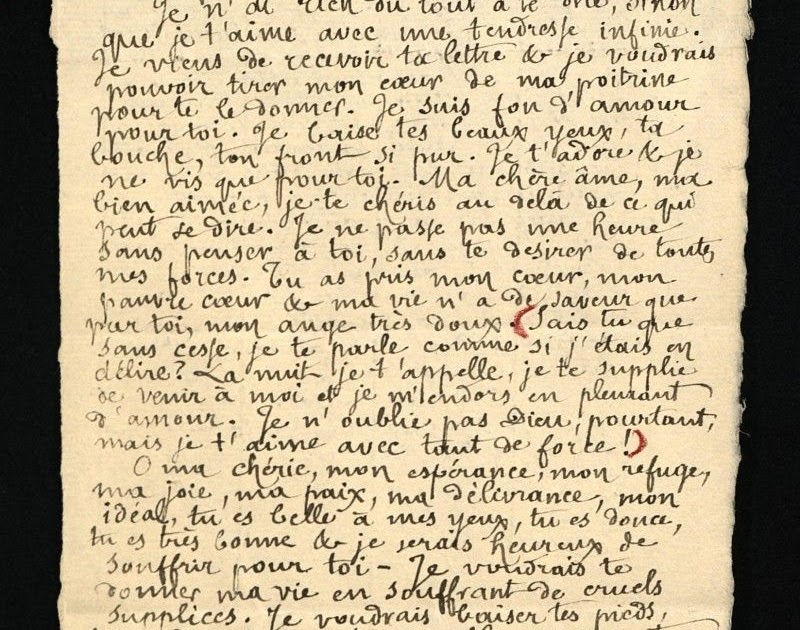 Je n'ai rien du tout à te dire, sinon
que je t'aime avec une tendresse infinie.
Je viens de recevoir ta lettre & je voudrais
pouvoir tirer mon cœur de ma poitrine
pour te le donner. Je suis fou d'amour
pour toi. Je baise tes beaux yeux, ta
bouche, ton front si pur. Je t'adore & je
ne vis que pour toi. Ma chère âme, ma
bien aimée, je te chéris au delà de ce qui
peut se dire. Je ne passe pas une heure
sans penser à toi, sans te desirer de toutes
mes forces. Tu as pris mon cœur, mon
pauvre cœur & ma vie n'a de saveur que
par toi, mon ange très doux. (Sais tu que
sans cesse, je te parle comme si j'étais en
délire? La nuit je t'appelle, je te supplie
de venir à moi et je m'endors en pleurant
d'amour. Je n'oublie pas Dieu, pourtant,
mais je t'aime avec tant de force !)
O ma chérie, mon espérance, mon refuge,
ma joie, ma paix, ma délivrance, mon
idéal, tu es belle à mes yeux, tu es douce,
tu es très bonne & je serais heureux de
souffrir pour toi - Je voudrais te
donner ma vie en souffrant de cruels
supplices. Je voudrais baiser tes pieds,